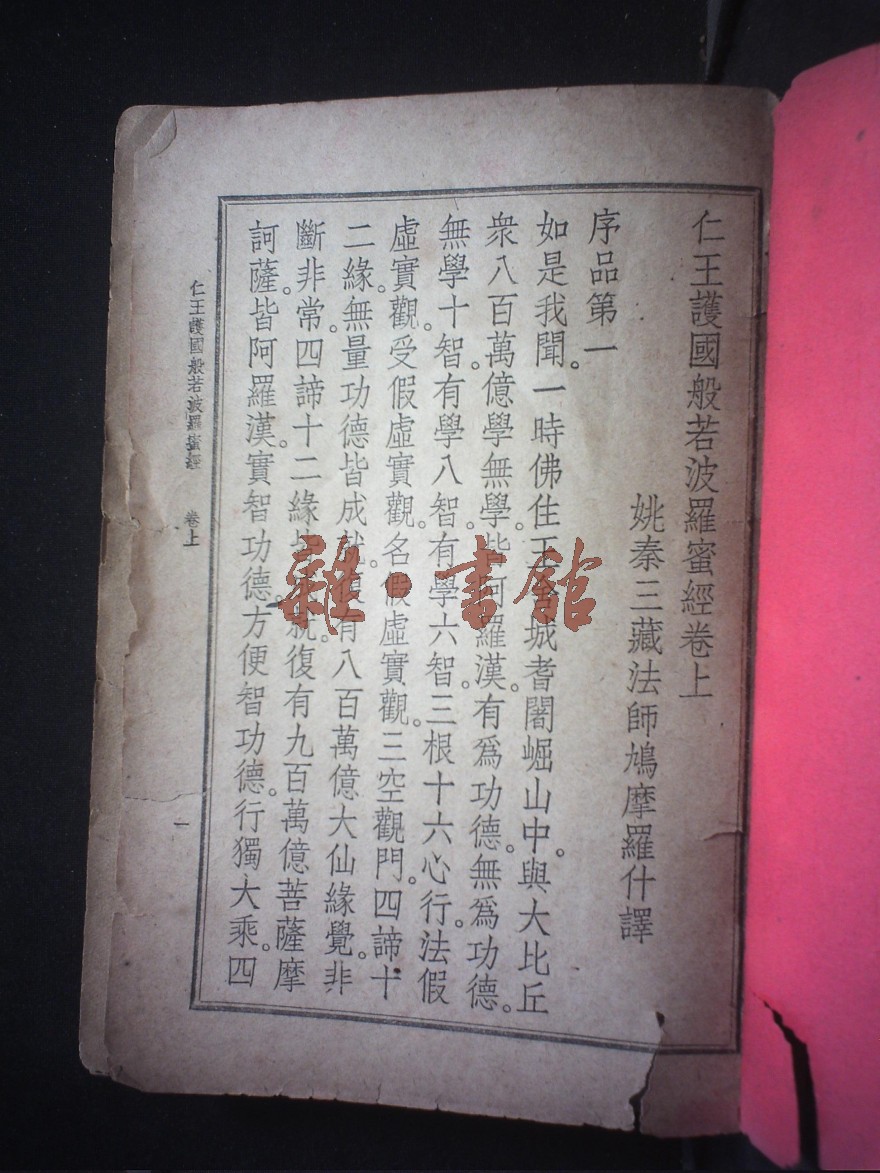 仁王護國般若波羅蜜經卷上
姚秦三藏法師鳩摩羅什譯
序品第一
如是我聞。一時佛住王舍城耆闍崛山中。與大比丘
衆八百萬億學無學。皆阿羅漢。有爲功德。無爲功德。
無學十智。有學八智。有學六智。三根十六心行。法假
虛實觀。受假虛實觀。名假虛實觀。三空觀門。四諦十
二緣。無量功德皆成就。復有八百萬億大仙緣覺。非
斷非常。四諦十二緣皆成就。復有九百萬億菩薩摩
訶薩。皆阿羅漢。實智功德。方便智功德。行獨大乘。四
仁王護國般若波羅蜜經 卷上
一
雜·書館